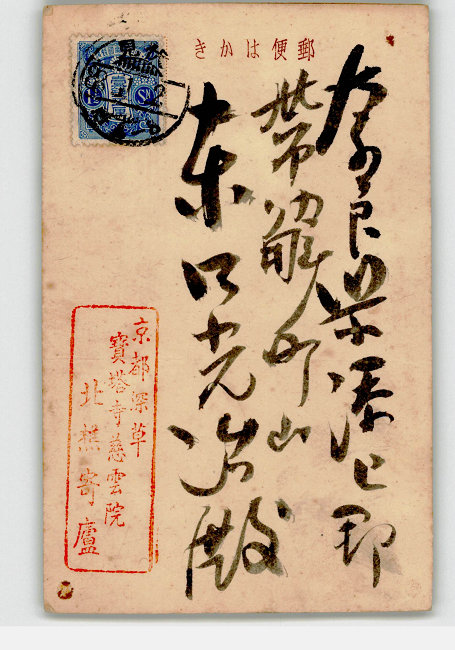 郵便はかき
奈良県添上郡
帶解町山
東口光治殿
京都深草
寳塔寺慈雲院
北樵寄廬